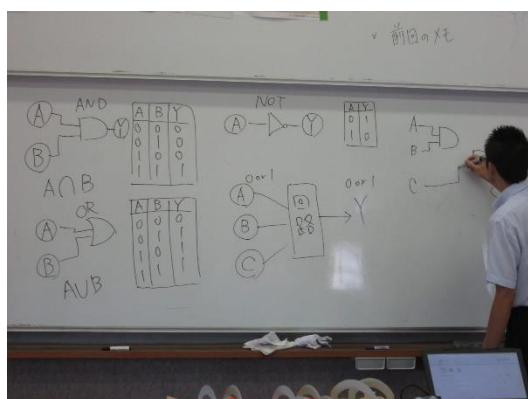 前回のメモ
AND
A
B
Y
A B Y
0 0 0
0 1 0
1 0 0
1 1 1
A∩B
NOT
A
Y
A Y
0 1
1 0
OR
A
B
A∪B
A B Y
0 0 0
0 1 1
1 0 1
1 1 1
0 or 1
A
B
C
0 or 1
Y
A
B
C